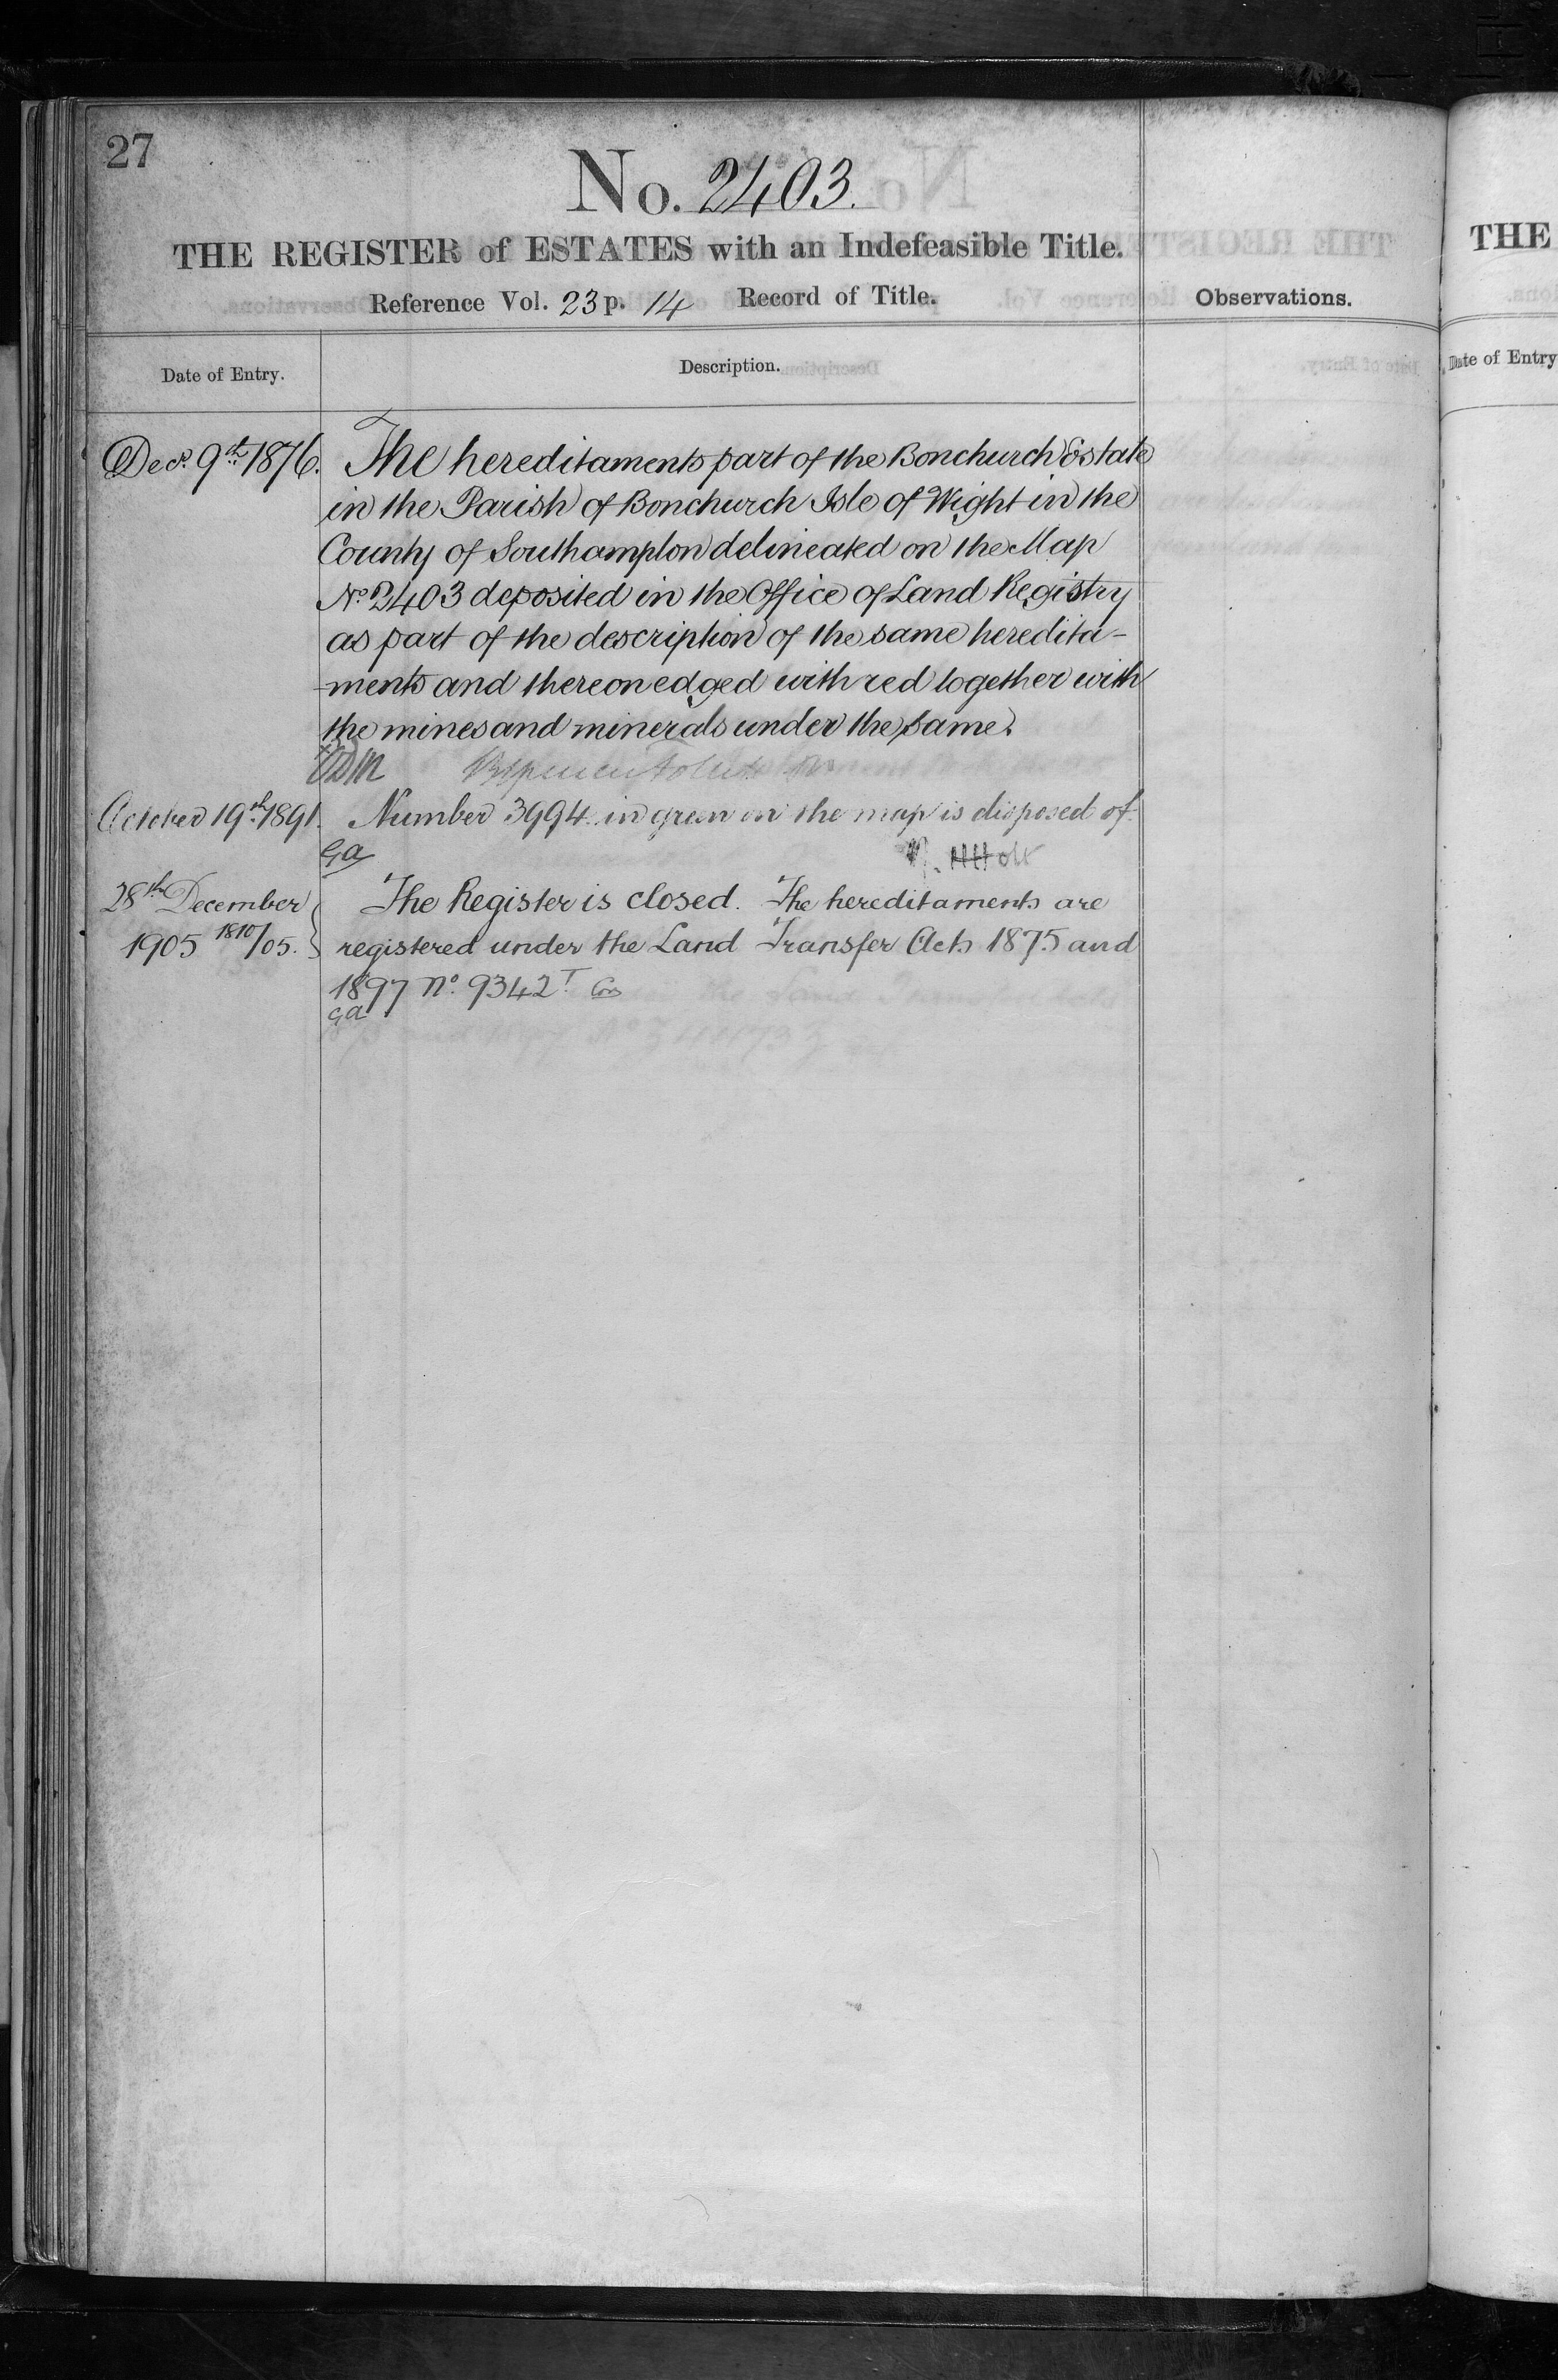 27
No. 2403.
THE REGISTER of ESTATES with an Indefeasible Title.
Reference Vol. 23 p. 14 Record of Title.
Observations.
Date of Entry.
Description.
Decr. 9th. 1876.
The hereditaments part of the Bonchurch Estate
in the Parish of Bonchurch Isle of Wight in the
County of Southampton delineated on the Map
No. 2403 deposited in the Office of Land Registry
as part of the description of the same heredita-
-ments and thereon edged with red together with
the mines and minerals under the same.
October 19th. 1891.
Number 3994 in green on the map is disposed of.
Ga
Holt
28th December
1905 1810/05.
The Register is closed. The hereditaments are
registered under the Land Transfer Acts 1875 and
1897 No. 9342 T
Ga
THE
Date of Entry